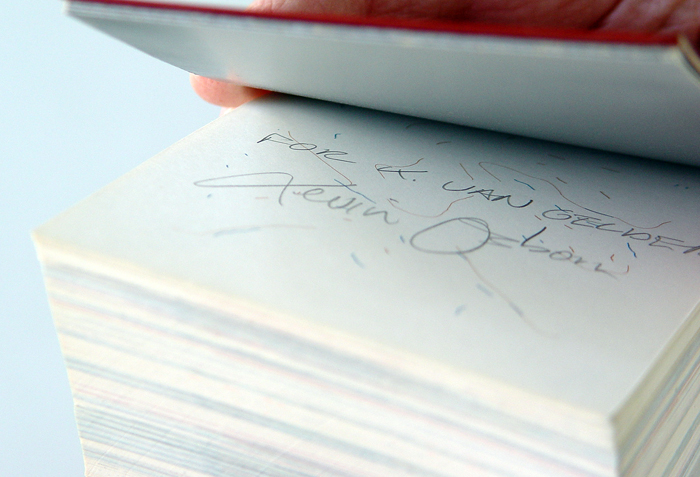 FOR H. VAN GELDER
Kevin Osborn